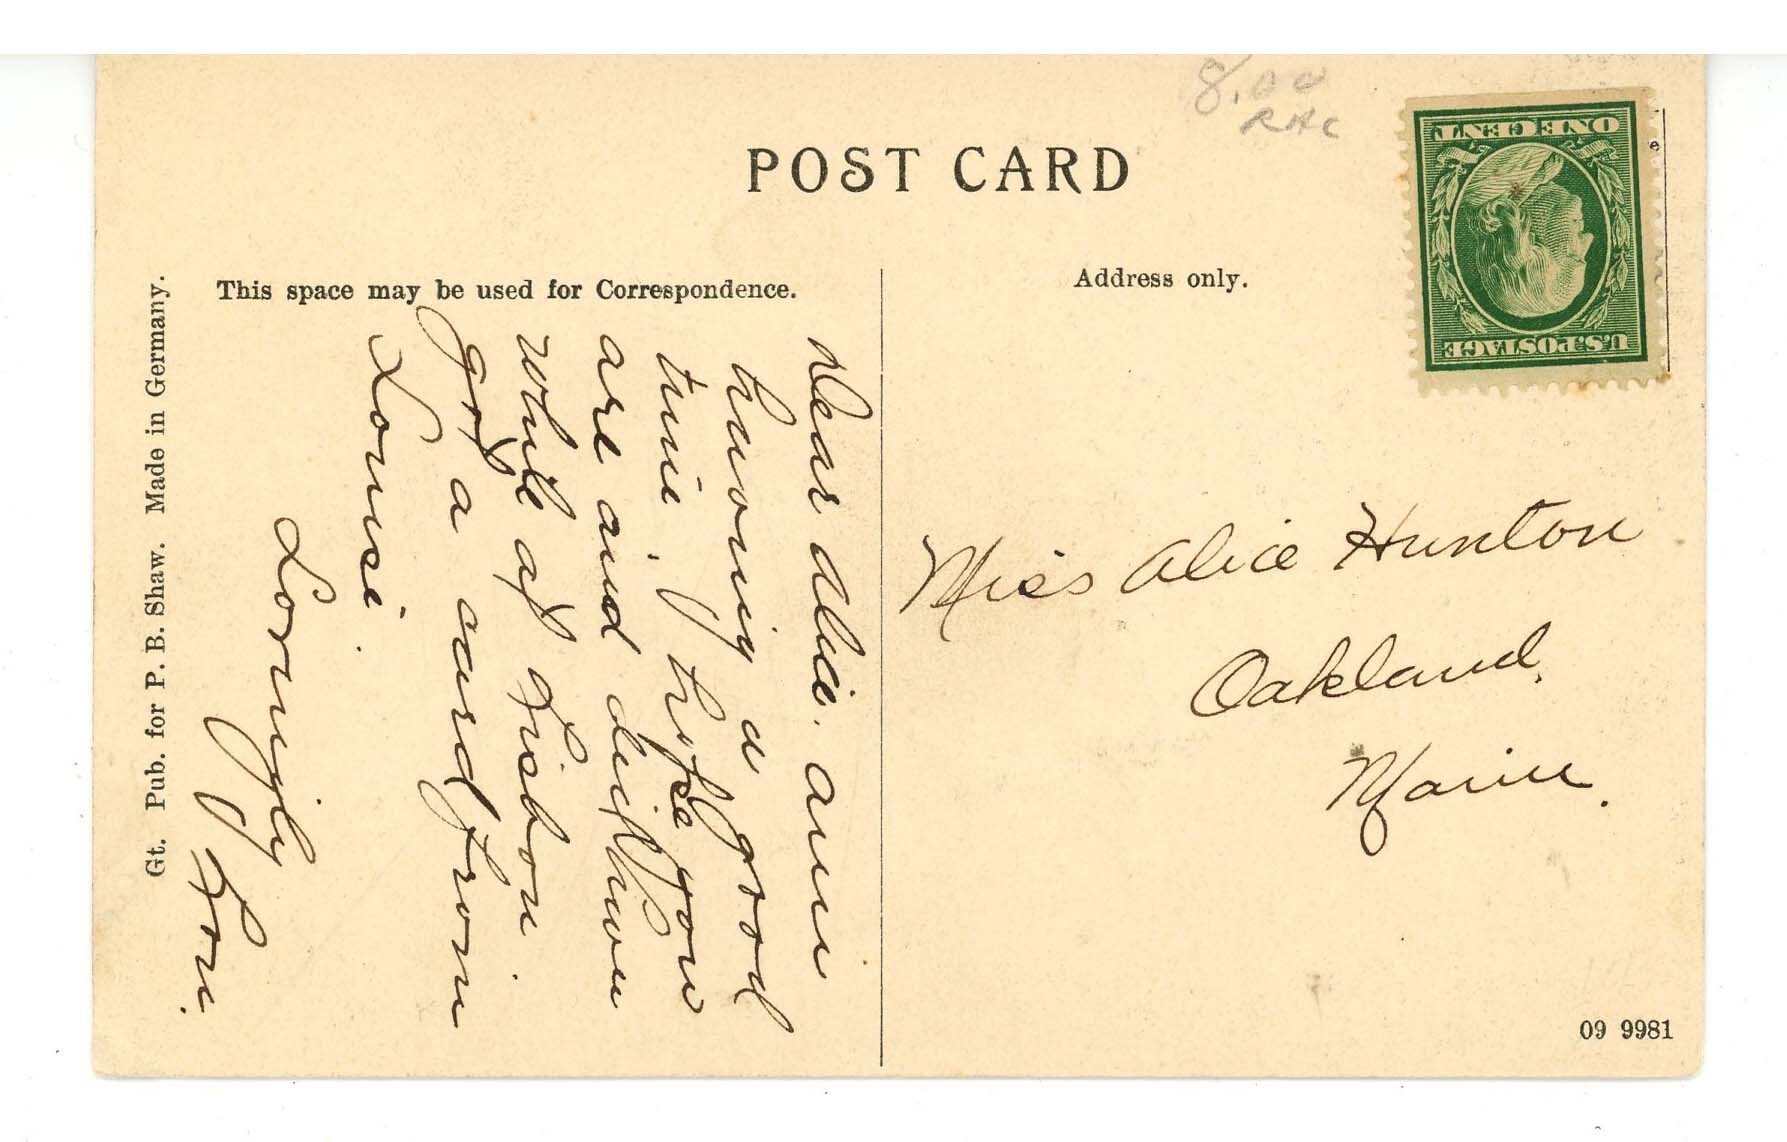 8.00
RHC
POST CARD
ONE CENT
U.S. POSTAGE
This space may be used for Correspondence.
Address only.
Gt. Pub. for P. B. Shaw. Made in Germany.
Dear Alice. am
having a good
time, hope you
are and
while at Lisbon
got a card from
Louise.
Lovingly
Lou.
Miss Alice Hunton
Oakland,
Maine.
09 9981